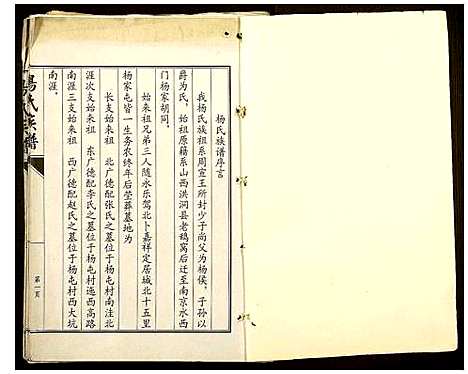 杨氏族谱序言
我杨氏族祖系周宣王所封少子尚父为杨侯，子孙以
爵为氏，始祖原籍系山西洪洞县老鸹窝后迁至南京水西
门杨家胡同。
始来祖兄弟三人随永乐驾北卜嘉祥定居城北十五里
杨家屯皆一生务农终年后茔葬墓地为
长支始来祖 北广德配张氏之墓位于杨屯村南洼北
涯次支始来祖 东广德配李氏之墓位于杨屯村迤西高路
南涯三支始来祖 西广德配赵氏之墓位于杨屯村西大坑
南涯。
楊氏族譜
第一页